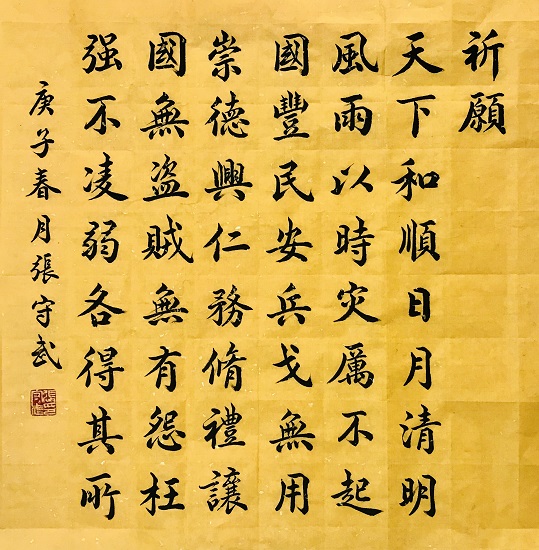 祈願
天下和順日月清明
風雨以時灾厲不起
國豐民安兵戈無用
崇德興仁務脩禮讓
國無盜賊無有怨枉
强不凌弱各得其所
庚子春月張守武